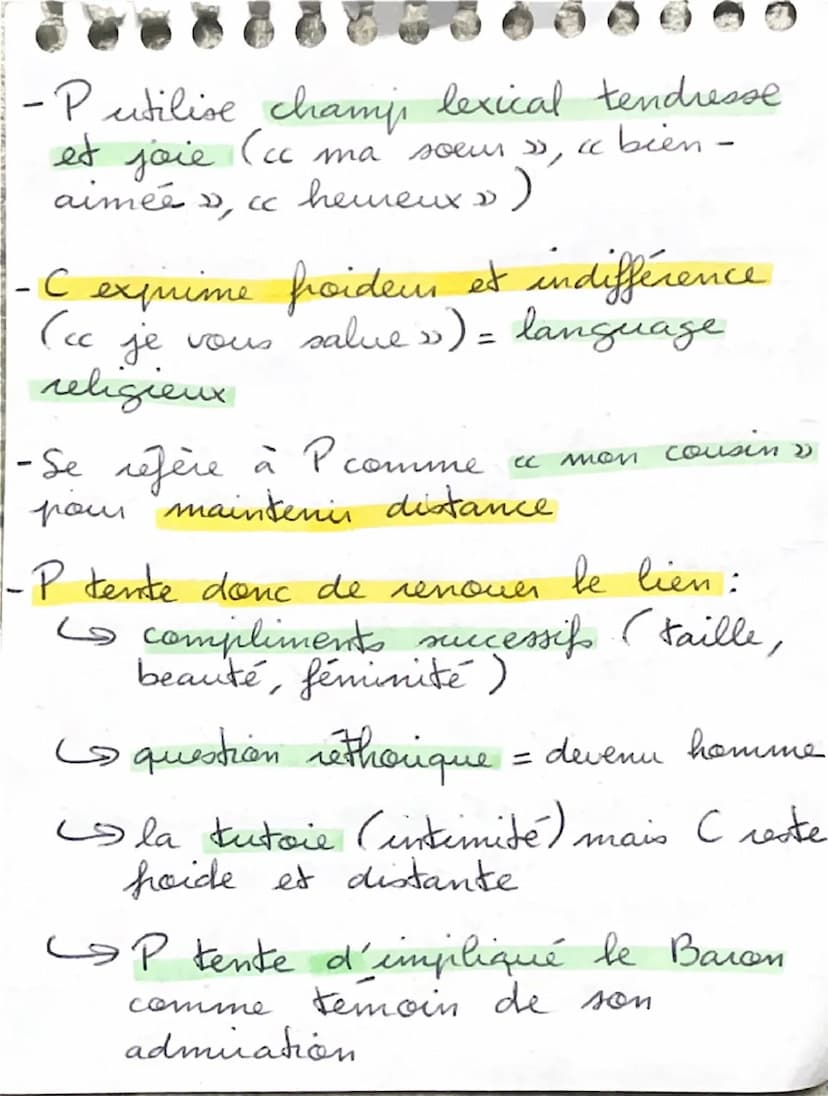 - P utilise champ lexical tendresse
et joie (« ma soeur », « bien-
aimée », « heureux »)
- C exprime froideur et indifférence
(« je vous salue ») = language
religieux
- Se réfère à P comme « mon cousin »
pour maintenir distance
- P tente donc de renouer le lien :
↪ compliments successifs (taille,
beauté, féminité)
↪ question réthorique = devenu homme
↪ la tutoie (intimité) mais C reste
froide et distante
↪ P tente d'impliqué le Baron
comme témoin de son
admiration